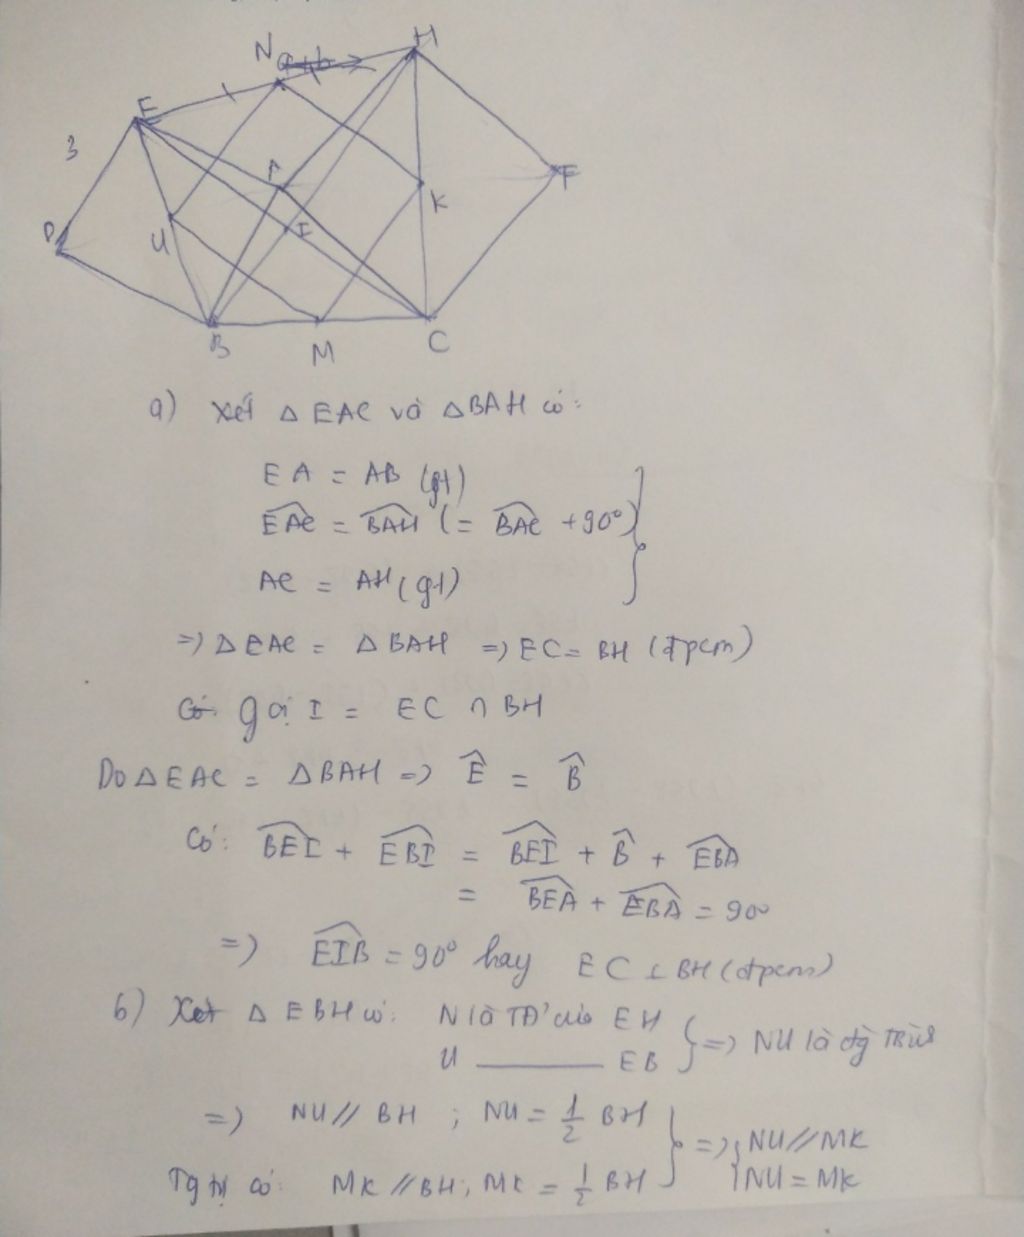 N
H
E
3
A
F
K
D
U
I
B
M
C
a) Xét Δ EAC và Δ BAH có:
EA = AB (gt)
EAC = BAH (= BAC + 90°)
AC = AH (gt)
=> Δ EAC = Δ BAH => EC = BH (đpcm)
gọi I = EC ∩ BH
Do Δ EAC = Δ BAH => Ê = B̂
Có: BEI + EBI = BEI + B̂ + EBA
= BEA + EBA = 90
=> EIB = 90° hay EC ⊥ BH (đpcm)
b) Xét Δ EBH có: N là TĐ' của EH
U ——— EB
=> NU là đg TBùh
=> NU // BH ; NU = 1/2 BH
Tg tự có: MK // BH; MK = 1/2 BH
=> NU // MK
NU = MK